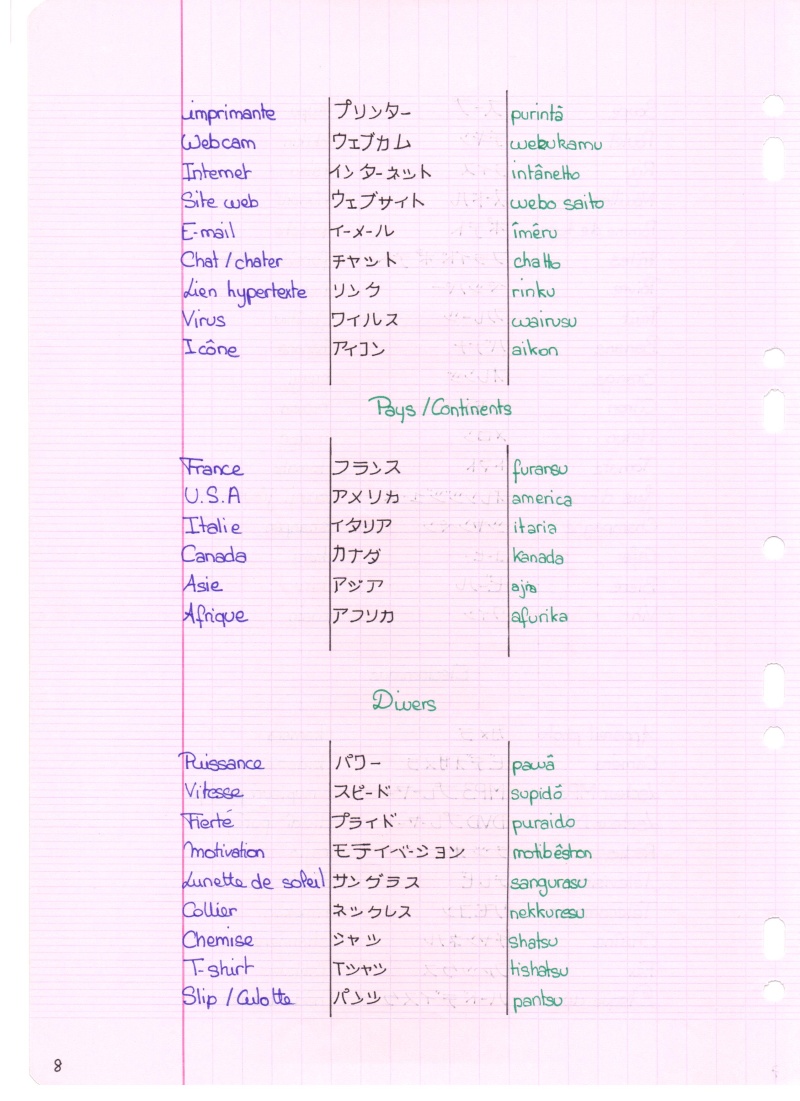 imprimante プリンター purintâ
Webcam ウェブカム webukamu
Internet インターネット intânetto
Site web ウェブサイト webo saito
E-mail イーメール îmêru
Chat / chater チャット chatto
Lien hypertexte リンク rinku
Virus ワイルス wairusu
Icône アイコン aikon
Pays / Continents
France フランス furansu
U.S.A アメリカ america
Italie イタリア itaria
Canada カナダ kanada
Asie アジア ajia
Afrique アフリカ afurika
Divers
Puissance パワー pawâ
Vitesse スピード supidô
Fierté プライド puraido
motivation モテイベーション motibêshon
Lunette de soleil サングラス sangurasu
Collier ネックレス nekkuresu
Chemise シャツ shatsu
T-shirt Tシャツ tishatsu
Slip / Culotte パンツ pantsu
8